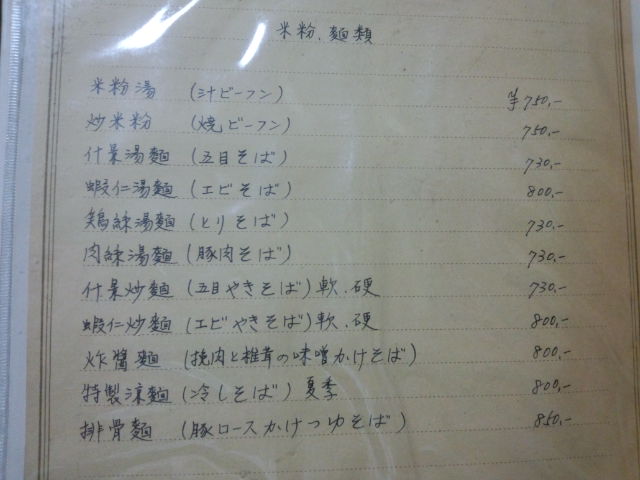 米粉、麺類
米粉湯 (汁ビーフン) ¥750,-
炒米粉 (焼ビーフン) 750,-
什景湯麺 (五目そば) 730,-
蝦仁湯麺 (エビそば) 800,-
鶏絲湯麺 (とりそば) 730,-
肉絲湯麺 (豚肉そば) 730,-
什景炒麺 (五目やきそば) 軟、硬 730,-
蝦仁炒麺 (エビやきそば) 軟、硬 800,-
炸醬麺 (挽肉と椎茸の味噌かけそば) 800,-
特製涼麺 (冷しそば) 夏季 800,-
排骨麺 (豚ロースかけつゆそば) 850,-